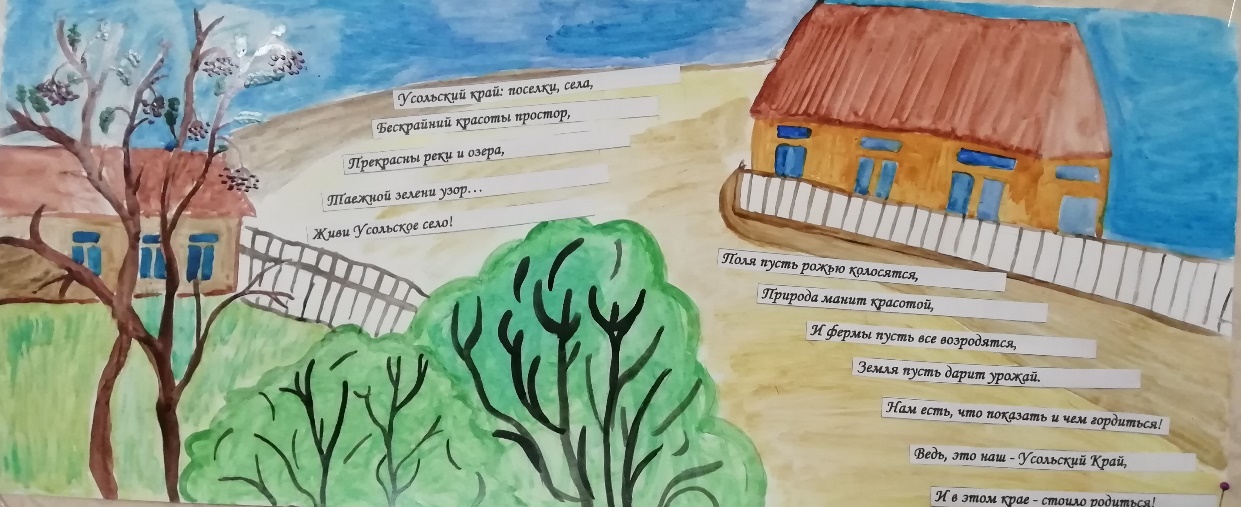 Усольский край: поселки, села,
Бескрайний красоты простор,
Прекрасны реки и озера,
Таежной зелени узор...
Живи Усольское село!
Поля пусть рожью колосятся,
Природа манит красотой,
И фермы пусть все возродятся,
Земля пусть дарит урожай.
Нам есть, что показать и чем гордиться!
Ведь, это наш - Усольский Край,
И в этом крае - стоило родиться!